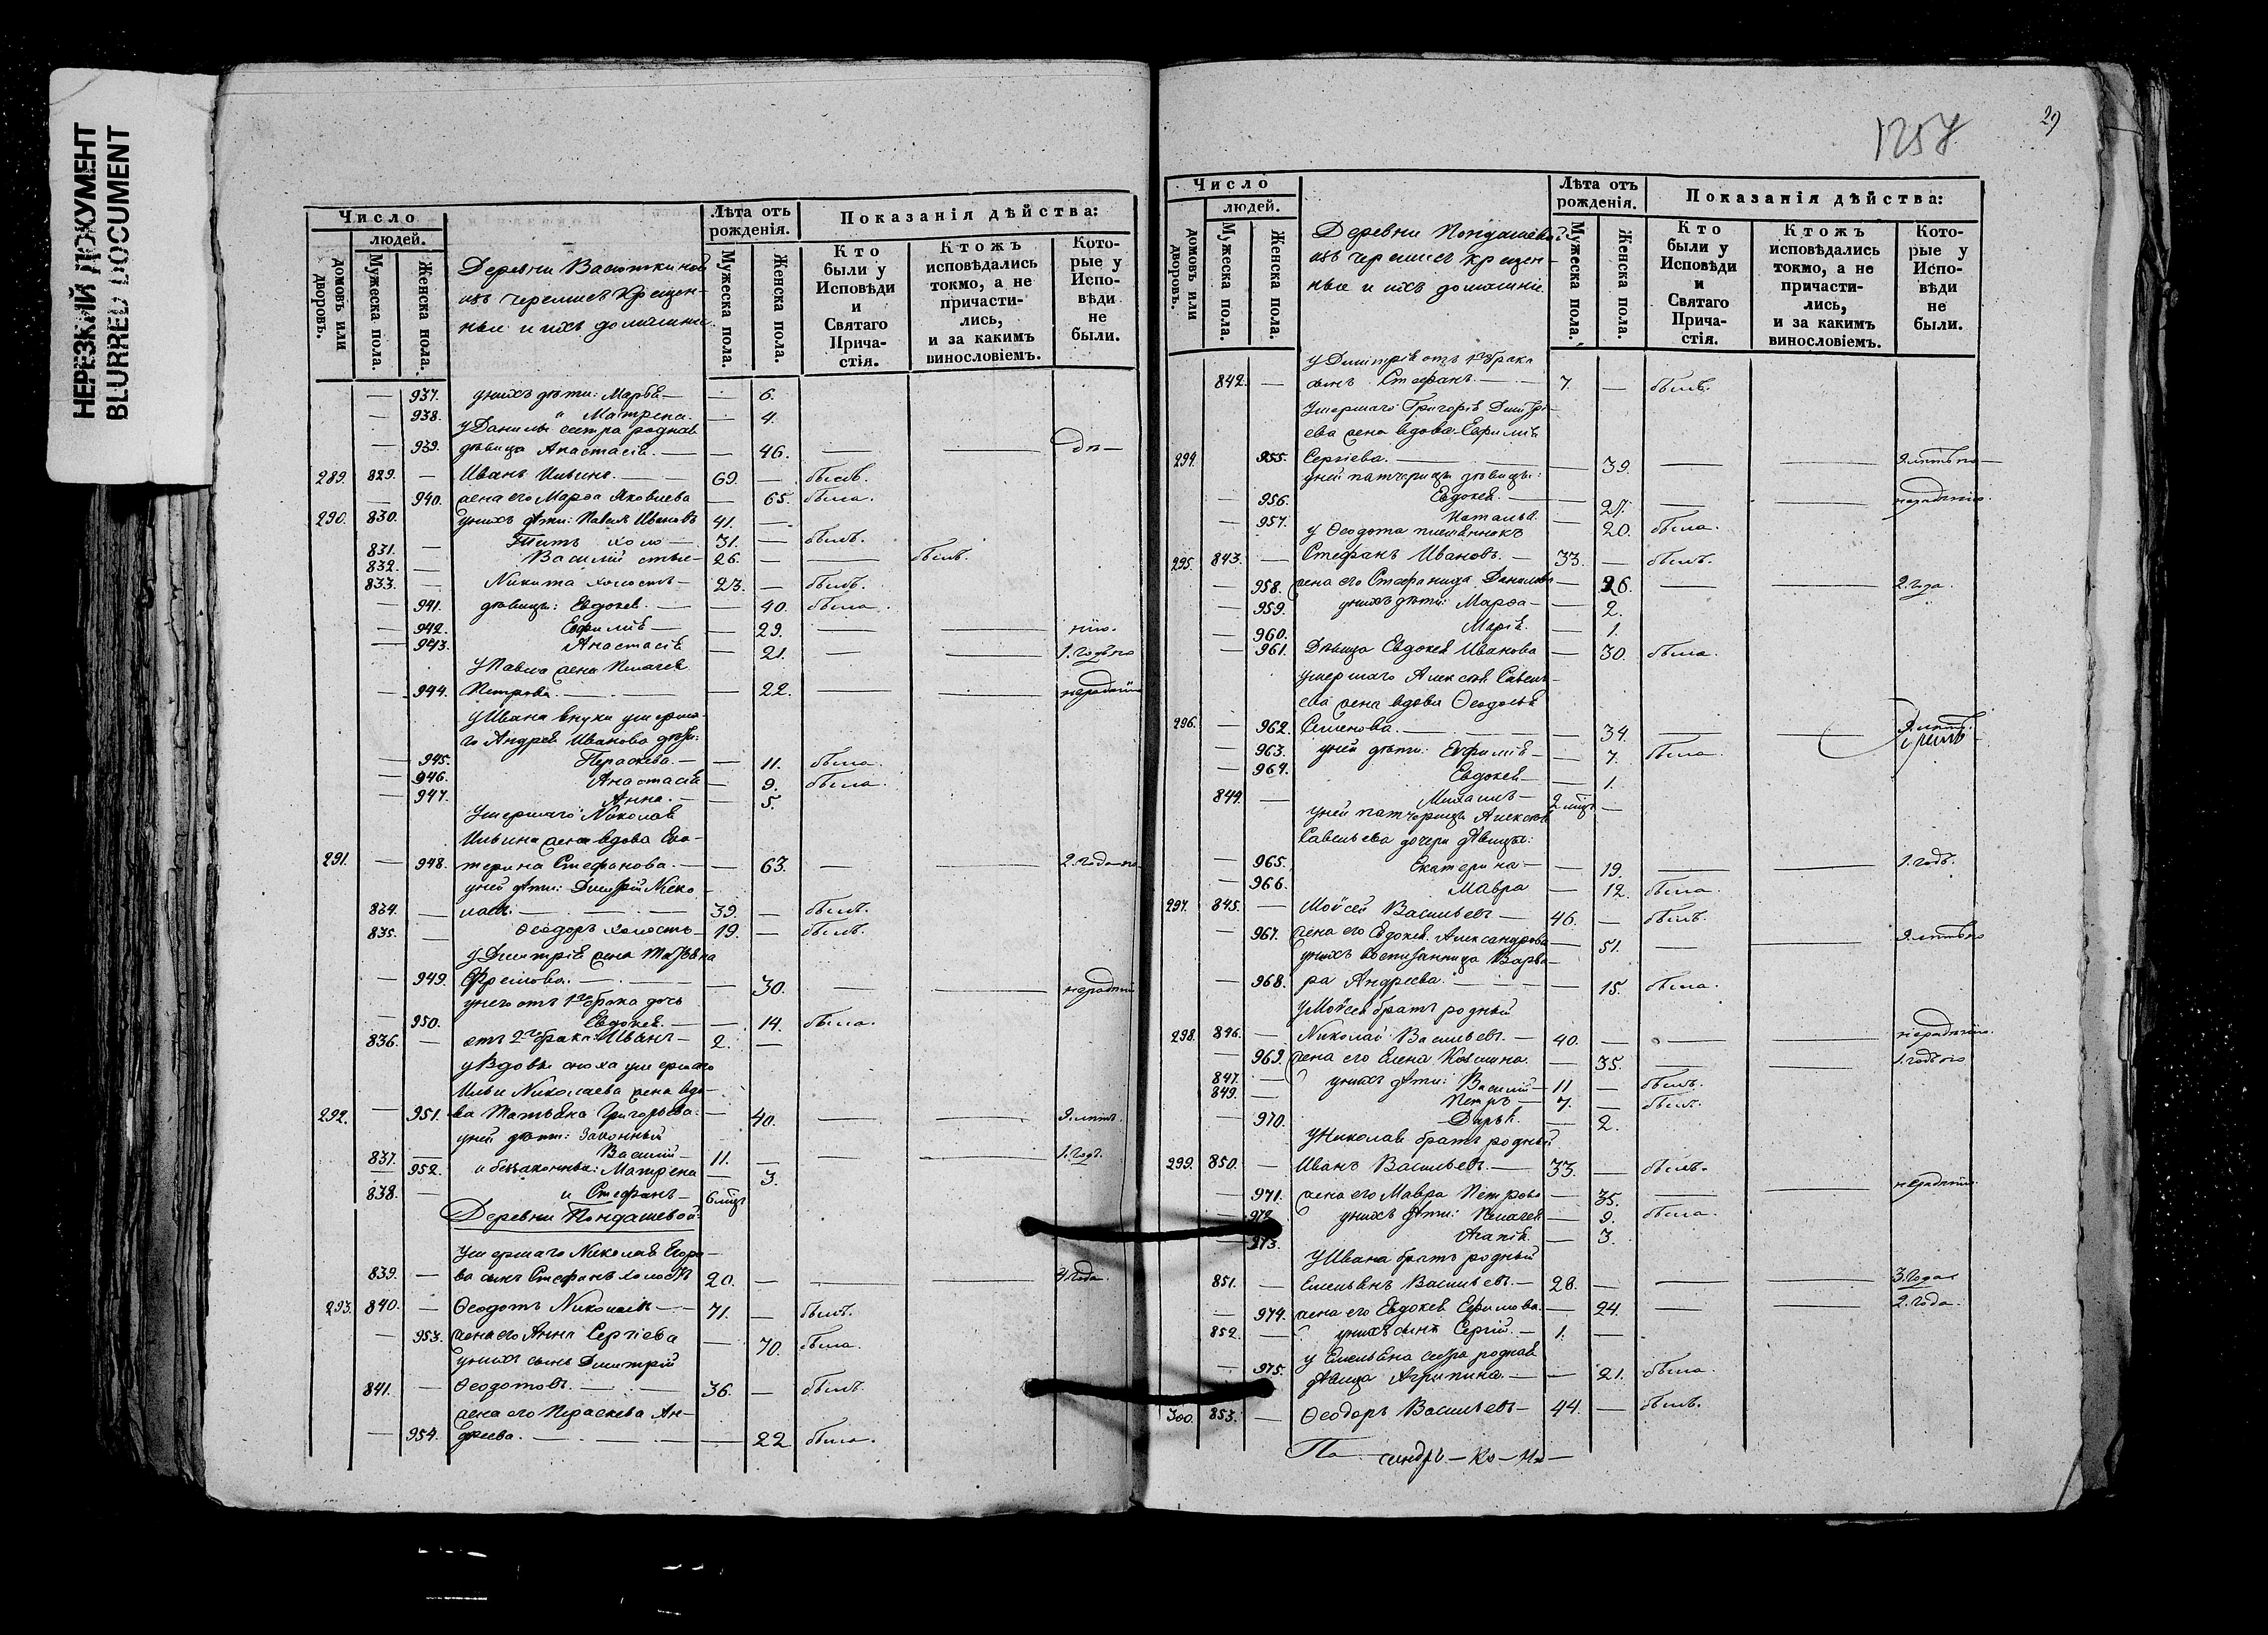 НЕРЕЗКИЙ ДОКУМЕНТ
BLURRED DOCUMENT
Число
людей.
домовъ или дворовъ.
Мужеска пола.
Женска пола.
Деревни Васюткиной
изъ черемисъ крещен-
ные и ихъ домашніе.
Лѣта отъ рожденія.
Мужеска пола.
Женска пола.
Показанія дѣйства:
Кто были у Исповѣди и Святаго Прича- стія.
Ктожъ исповѣдались токмо, а не причасти- лись, и за какимъ винословіемъ.
Кото- рые у Испо- вѣди не были.
— 937. у нихъ дѣти: Марѳа — — 6.
— 938. и Матрена. — 4.
у Данилы сестра родная
— 939. дѣвица Анастасія. — — 46. — —
289. 829. — Иванъ Ильинъ. — 69. — былъ.
— 940. жена его Марѳа Яковлева — 65. была.
290. 830. у нихъ дѣти: Павелъ Ивановъ 41. —
831. — Титъ холо — 31. — былъ.
832. — Василій 26. — — былъ.
833. — Никита холостъ — 23. — былъ.
— 941. дѣвицы: Евдокея. — — 40. была.
— 942. Евфимія — — 29. — —
— 943. Анастасія — 21. — — 1. годъ по
у Павла жена Пелагея
— 944. Петрова. — — — 22. — — нерадѣнію
у Ивана внуки умерша-
го Андрея Иванова дѣти:
— 945. Параскева. — — 11. была.
— 946. Анастасія — 9. была.
— 947. Анна. — — 5.
Умершаго Николая
Ильина жена вдова Ека-
291. — 948. терина Стефанова. — — 63. — — 2. года по
у ней дѣти: Дмитрій Нико-
834. — лаевъ. — 39. — былъ.
835. — Ѳеодоръ холостъ — 19. — былъ.
у Дмитрія жена Татьяна
— 949. Ефремова. — — 30. — — нерадѣнію
у него отъ 1го брака дочь
— 950. Евдокея. — — 14. была.
836. — отъ 2го брака: Иванъ — 2. —
у вдовы сноха умершаго
Ильи Николаева жена вдо-
292. — 951. ва Татьяна Григорьева. — 40. — — 9. лѣтъ.
у ней дѣти: законный
837. — Василій — 11. — — — 1. годъ.
— 952. и беззаконные: Матрена — 3.
838. — и Стефанъ — 6 мѣц.
Деревни Пондашевой.
Умершаго Николая Егоро-
839. — ва сынъ Стефанъ холостъ 20. — — — года.
293. 840. — Ѳеодотъ Николаевъ — 71. — былъ.
— 953. жена его Анна Сергіева — 70. была.
у нихъ сынъ Дмитрій
841. — Ѳеодотовъ. — 36. — былъ.
жена его Параскева Ан-
— 954. дреева. — — 22 была.
1257
29
Число
людей.
домовъ или дворовъ.
Мужеска пола.
Женска пола.
Деревни Пондашевой
изъ черемисъ крещен-
ные и ихъ домашніе.
Лѣта отъ рожденія.
Мужеска пола.
Женска пола.
Показанія дѣйства:
Кто были у Исповѣди и Святаго Прича- стія.
Ктожъ исповѣдались токмо, а не причасти- лись, и за какимъ винословіемъ.
Кото- рые у Испо- вѣди не были.
у Дмитрія отъ 1го брака
842. — сынъ Стефанъ. — 7. — былъ.
Умершаго Григорія Дмитрі-
ева жена вдова Евфимія
294. 955. Сергіева. — — 39. — — 9. лѣтъ по
у ней падчерицы дѣвицы:
— 956. Евдокея. — — 27. — — нерадѣнію.
— 957. Наталья. — 20. была.
у Ѳеодота племянникъ
295. 843. — Стефанъ Ивановъ. — 33. — былъ.
— 958. жена его Стефанида Данилова — 26. — — 2. года.
— 959. у нихъ дѣти: Марѳа — — 2.
— 960. Марія. — 1.
— 961. Дѣвица Евдокея Иванова — 30. была.
умершаго Алексѣя Савель-
ева жена вдова Ѳеодосья
296. — 962. Семенова. — — 34. — — 9. лѣтъ.
— 963. у ней дѣти: Евфимія — — 7. была
— 964. Евдокея — — 1.
844. — Михаилъ — 2 мѣц. —
у ней падчерицы Алексѣя
Савельева дочери дѣвицы:
— 965. Екатерина — — 19. — — 1. годъ.
— 966. Мавра — 12. была.
297. 845. — Мойсей Васильевъ — 46. — былъ.
— 967. жена его Евдокея Александрова — 51. — — 9. лѣтъ по
у нихъ воспитанница Варва-
— 968. ра Андреева. — — 15. была.
у Мойсея братъ родный
298. 846. — Николай Васильевъ. — 40. — — нерадѣнію.
— 969. жена его Елена Козмина. — 35. — — 1. годъ по
847. — у нихъ дѣти: Василій — 11 — былъ.
849. — Петръ — 7. — былъ.
— 970. Дарья. — 2.
у Николая братъ родный
299. 850. — Иванъ Васильевъ. — 33. — былъ.
— 971. жена его Мавра Петрова — 35. — — нерадѣнію.
— 972. у нихъ дѣти: Пелагея — 9. была.
— 973. Агапія. — 3.
У Ивана братъ родный
851. — Емельянъ Васильевъ. — 28. — — — 3. года
— 974. жена его Евдокея Ефимова. — 24. — — 2. года.
852. — у нихъ сынъ Сергій. — 1. —
у Емельяна сестра родная
— 975. дѣвица Агрипина. — — 21. была.
300. 853. — Ѳеодоръ Васильевъ — 44. — былъ.